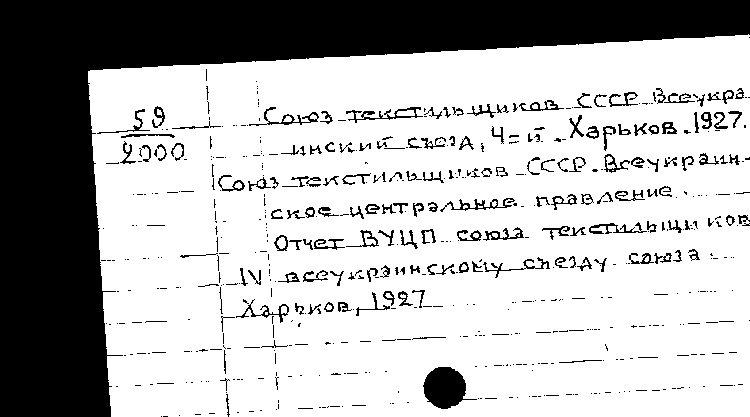 59
2000
Союз текстильщиков СССР. Всеукра-
инский съезд, 4=й. Харьков. 1927.
Союз текстильщиков СССР. Всеукраин-
ское центральное правление.
Отчет ВУЦП союза текстильщиков
IV всеукраинскому съезду союза.
Харьков, 1927